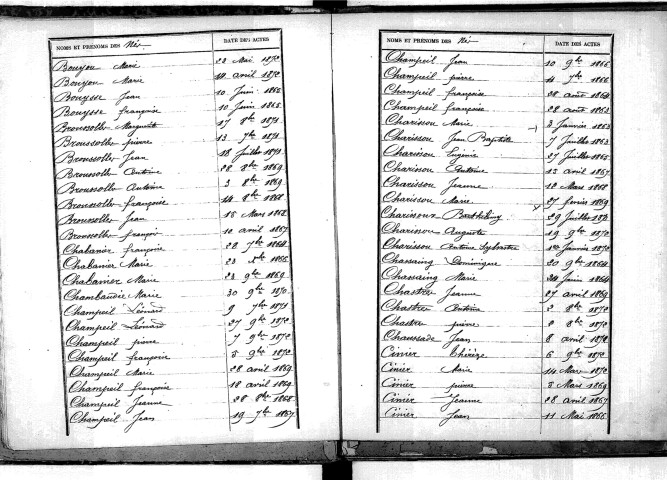 NOMS ET PRÉNOMS DES Nés DATE DES ACTES
Bouyon Marie 22 Mai 1870
Bouyon Marie 14 avril 1870
Bouysse Jean 10 Juin 1866
Bouysse françoise 10 Juin 1866
Broussolle Marguerite 17 8bre 1871
Broussolle pierre 13 7bre 1871
Broussolle Jean 18 Juillet 1871
Broussolle Antoine 28 8bre 1869
Broussolle Antoine 3 8bre 1869
Broussolle françoise 14 8bre 1868
Broussolle Jean 15 Mars 1868
Broussolle françois 10 avril 1867
Chabanier françoise 22 7bre 1864
Chabanier Marie 23 1866
Chabanier Marie 23 9bre 1869
Chambaudie Marie 30 9bre 1870
Champeil Léonard 9 7bre 1871
Champeil Léonard 27 9bre 1872
Champeil pierre 7 9bre 1872
Champeil françoise 5 9bre 1872
Champeil Marie 28 avril 1869
Champeil françoise 10 avril 1869
Champeil Jeanne 28 8bre 1868
Champeil Jean 19 7bre 1867
NOMS ET PRÉNOMS DES Nés DATE DES ACTES
Champeil Jean 10 9bre 1866
Champeil pierre 4 7bre 1866
Champeil françoise 28 août 1864
Champeil françoise 28 août 1863
Charisson Marie 3 Janvier 1863
Charisson Jean Baptiste 7 Juillet 1863
Charisson Eugène 27 Juillet 1865
Charisson Antoine 12 avril 1867
Charisson Jeanne 12 Mars 1868
Charisson Marie 27 février 1869
Charisson Barthélémy 29 Juillet
Charisson Auguste 19 9bre 1870
Charisson Antoine Sylvestre 1er Janvier 1872
Chassaing Dominique 20 9bre 1864
Chassaing Marie 24 Juin 1864
Chastre Jeanne 27 avril 1869
Chastre Antoine 2 8bre 1872
Chastre pierre 2 8bre 1872
Chaussade Jean 8 avril 1872
Cinier thérèze 6 9bre 1872
Cinier Marie 14 Mars 1872
Cinier pierre 3 Mars 1869
Cinier Jeanne 28 avril 1867
Cinier Jean 11 Mai 1866